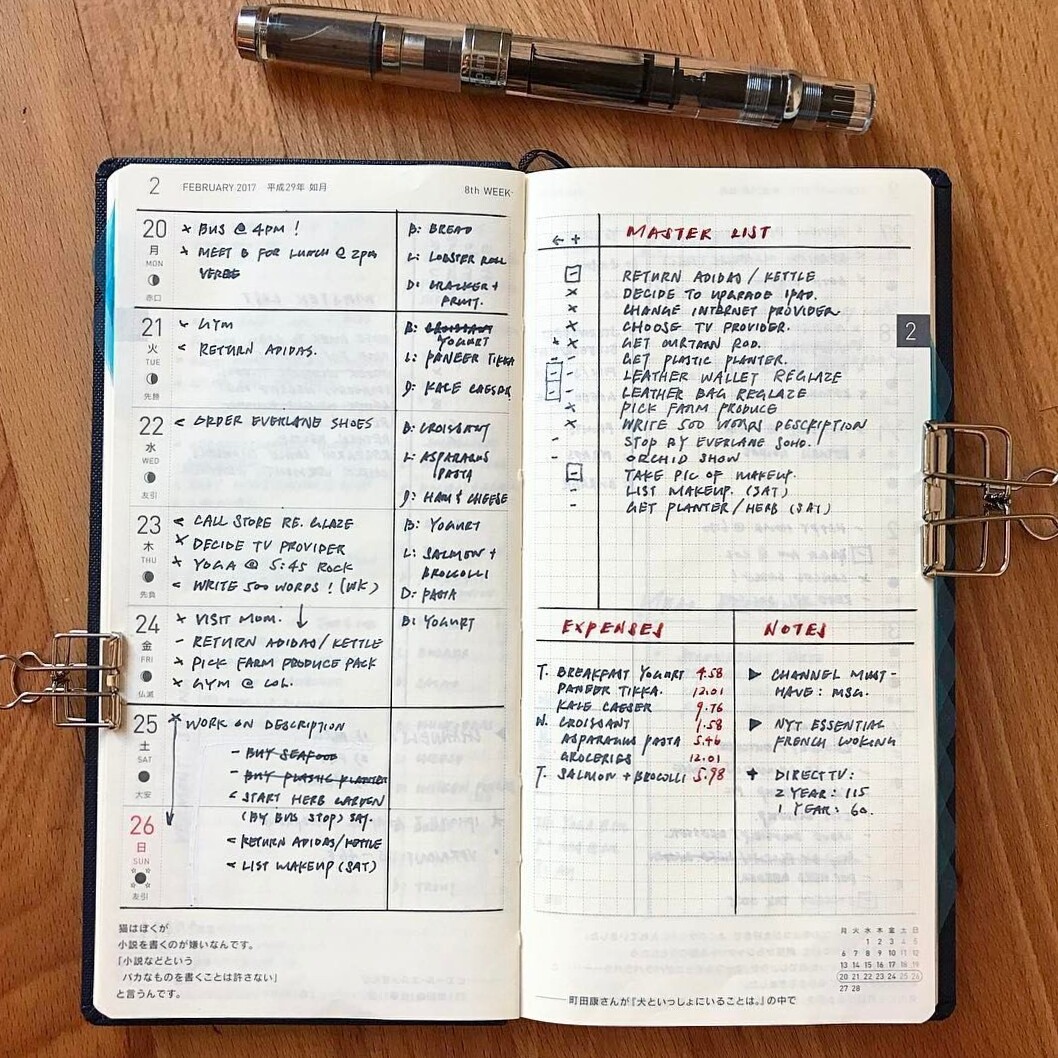 2 FEBRUARY 2017 平成29年 如月 8th WEEK
20 月 MON 赤口
× BUS @ 4PM !
× MEET B FOR LUNCH @ 2PM
B: BREAD
L: LOBSTER ROLL
D: CRACKER +
FRUIT.
21 火 TUE 先勝
× GYM
< RETURN ADIDAS.
B: CROISSANT
YOGURT
L: PANEER TIKKA
D: KALE CAESAR
22 水 WED 友引
< ORDER EVERLANE SHOES
B: CROISSANT
L: ASPARAGUS
PASTA
D: HAM & CHEESE
23 木 THU 先負
< CALL STORE RE. GLAZE
× DECIDE TV PROVIDER
× YOGA @ 5:45 ROCK
< WRITE 500 WORDS ! (WK)
B: YOGURT
L: SALMON +
BROCCOLLI
D: PASTA
24 金 FRI 仏滅
× VISIT MOM. ↓
- RETURN ADIDAS/KETTLE
× PICK FARM PRODUCE PACK
× GYM @ COL.
B: YOGURT
25 土 SAT 大安
× WORK ON DESCRIPTION
- BUY SEAFOOD
- BUY PLASTIC PLANTER
< START HERB GARDEN
(BY BUS STOP) SAT.
26 日 SUN 友引
< RETURN ADIDAS/KETTLE
< LIST MAKEUP (SAT)
猫はぼくが
小説を書くのが嫌いなんです。
「小説などという
バカなものを書くことは許さない」
と言うんです。
← + MASTER LIST
- RETURN ADIDAS / KETTLE
× DECIDE TO UPGRADE IPAD.
× CHANGE INTERNET PROVIDER
× CHOOSE TV PROVIDER.
GET CURTAIN ROD.
- - GET PLASTIC PLANTER.
- - LEATHER WALLET REGLAZE
- - LEATHER BAG REGLAZE
× PICK FARM PRODUCE
× WRITE 500 WORDS DESCRIPTION
- STOP BY EVERLANE SOHO.
- ORCHID SHOW
- TAKE PIC OF MAKEUP.
- LIST MAKEUP. (SAT)
- GET PLANTER/HERB (SAT)
2
EXPENSES
T. BREAKFAST YOGURT 4.58
PANEER TIKKA. 12.01
KALE CAESER 9.76
W. CROISSANT 1.58
ASPARAGUS PASTA 5.46
GROCERIES 12.01
T. SALMON + BROCOLLI 5.98
NOTES
▶ CHANNEL MUST-
HAVE: MSG.
▶ NYT ESSENTIAL
FRENCH COOKING
+ DIRECTTV:
2 YEAR: 115
1 YEAR: 60.
月 火 水 木 金 土 日
1 2 3 4 5
6 7 8 9 10 11 12
13 14 15 16 17 18 19
20 21 22 23 24 25 26
27 28
——町田康さんが『犬といっしょにいることは。』の中で